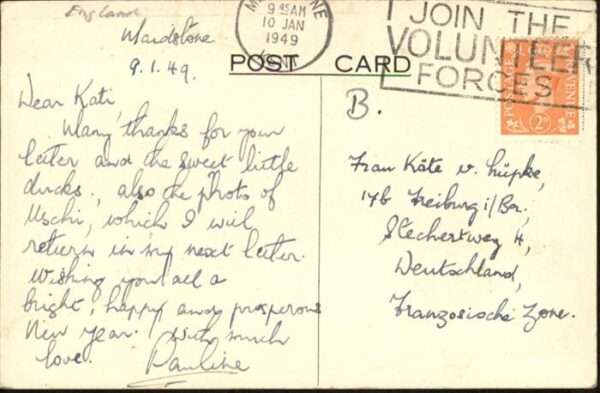 England
Maidstone
9.1.49.
Dear Kate,
Many thanks for your
letter and the sweet little
ducks, also the photo of
Uschi, which I will
return in my next letter.
Wishing you all a
bright, happy and prosperous
New Year. With much
love. Pauline
POST CARD
9 45 AM
10 JAN
1949
JOIN THE
VOLUNTEER
FORCES
POSTAGE REVENUE
2D
B.
Frau Käte v. Lüpke,
17b Freiburg i/Br.,
Stechertweg 4,
Deutschland,
Französische Zone.